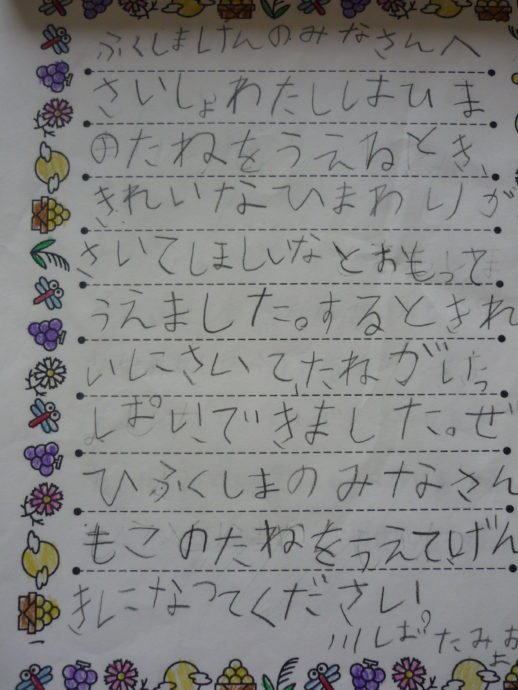 ふくしまけんのみなさんへ
さいしょわたししはひま
のたねをうえるとき、
きれいなひまわりが
さいてしほしいなとおもって
うえました。するときれ
いにさいて、たねがいっ
ぱいできました。ぜ
ひふくしまのみなさん
もこのたねをうえてげん
きになってください。